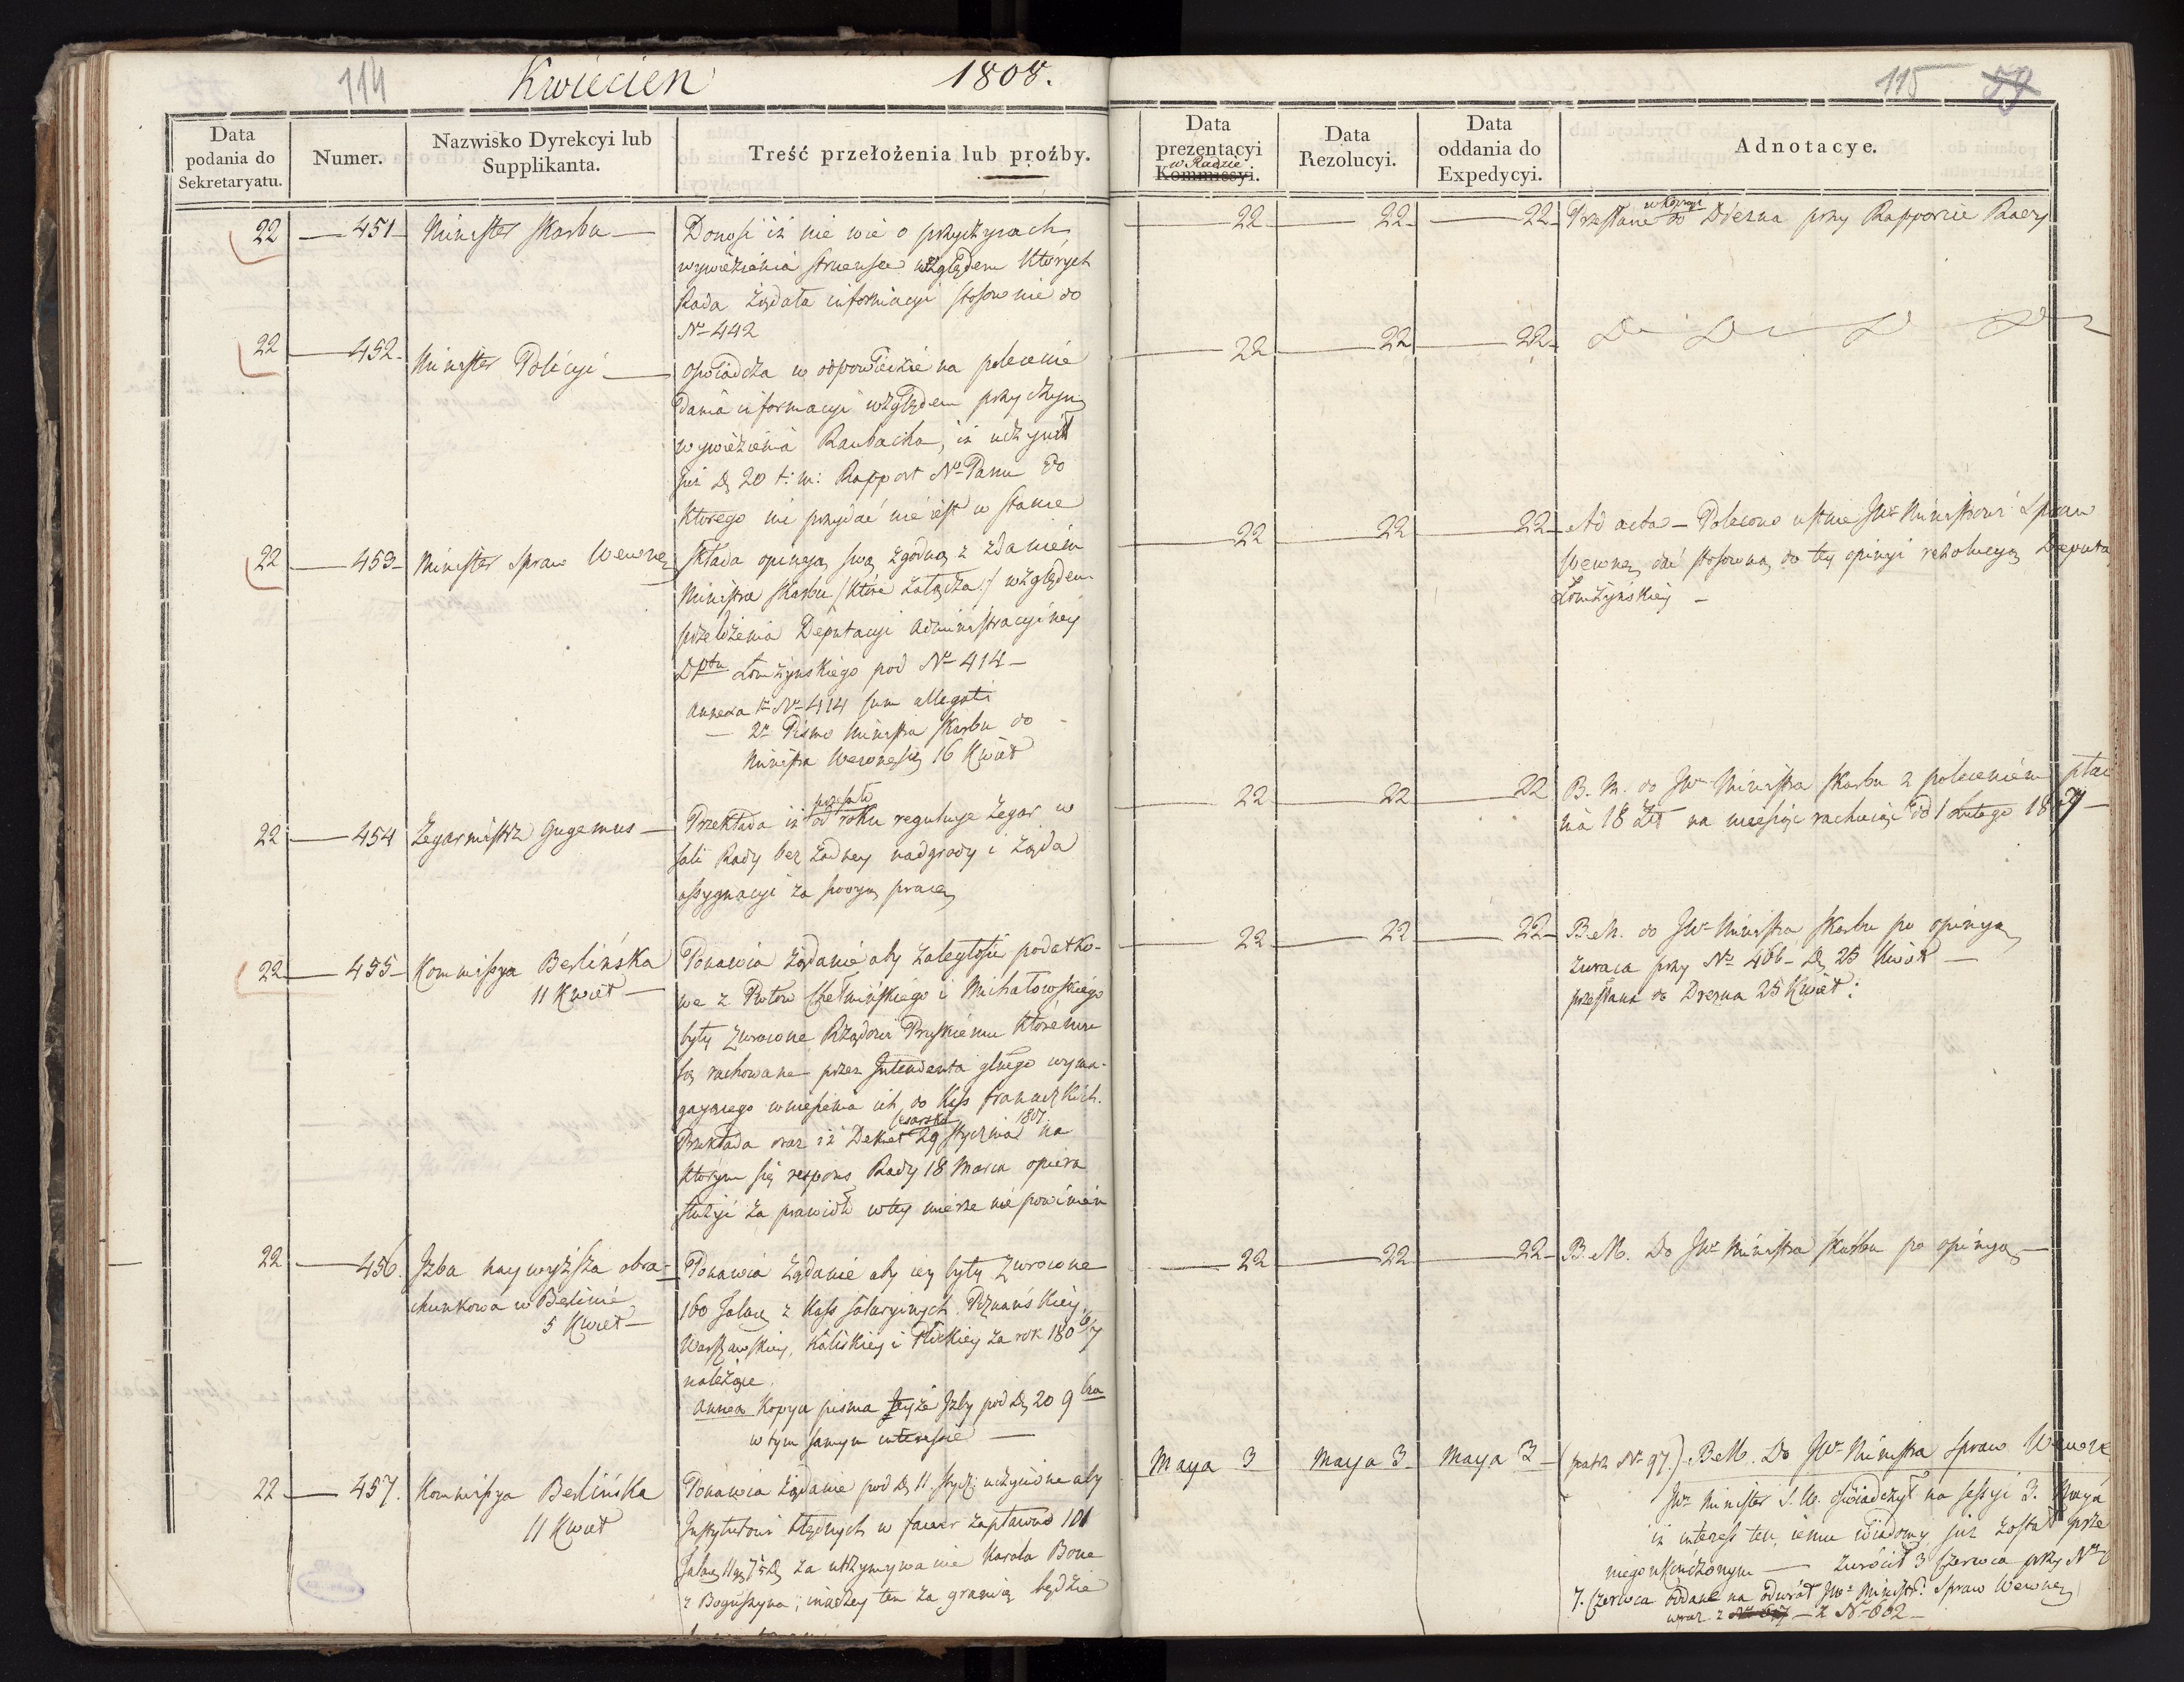 114
Kwiecień 1808.
Data podania do Sekretaryatu.
Numer.
Nazwisko Dyrekcyi lub Supplikanta.
Treść przełożenia lub proźby.
22 — 451 — Minister Skarbu —
Donosi iż nie wie o przyczynach
wywiezienia Struensee względem których
Rada żądała informacyi stosownie do
Nro 442
22 — 452 — Minister Policyi —
oświadcza w odpowiedzi na polecenie
dania informacyi względem przyczyn
wywiezienia Raubacha, iż uczynił
już D. 20 t: m: Rapport No Panu do
ktorego nic przydać nie iest w stanie
22 — 453 — Minister Spraw Wewnę
składa opinyą swą zgodną z zdaniem
Ministra Skarbu /: które załącza :/ względem
przełożenia Deputacyi Administracyiney
Dptu Łomżynskiego pod Nro 414 —
Annexa 1o Nro 414 cum allegatis
— 2o Pismo Ministra Skarbu do
Ministra Wewnę 16 Kwiet
22 — 454 Zegarmistrz Gugemus —
Przekłada iż przeszło od roku reguluje Zegar w
Sali Rady bez żadney nadgrody i żąda
assygnacyi za swoyą pracę
22 — 455 — Kommissya Berlińska
11 Kwiet —
Ponawia żądanie aby zaległości podatko-
we z Ptów Chełmińskiego i Michałowskiego
były zwrocone Rządowi Pruskiemu któremu
są rachowane przez Intendenta głnego wyma-
gającego wniesienia ich do Kass francuzkich.
Przekłada oraz iż Dekret Cesarski 29 Stycznia 1807. na
którym się respons Rady 18 Marca opiera
służyć za prawidło w tey mierze nie powinien
22 — 456. Jzba naywyższa obra-
chunkowa w Berlinie
5 Kwiet —
Ponawia żądanie aby iey były zwrocone
160 Talar z Kass Salaryinych Poznańskiey,
Warszawskiey, Kaliskiey i Płockiey za rok 1806/7
należące.
Annexa Kopya pisma teyże Jzby pod D. 20 9bra
w tym samym interessie —
22 — 457. Kommissya Berlińska
11 Kwiet
Ponawia żądanie pod D. 11. Stycz: uczynione aby
Instytutowi obłędnych w zapłacono 101
Talar 11 za utrzymywanie Karola Bone
z ; inaczey ten za granicę będzie
115
Data prezentacyi w Radzie Kommissyi.
Data Rezolucyi.
Data oddania do Expedycyi.
Adnotacye.
22 — 22 — 22 — Przesłane w kopyi do Drezna przy Rapporcie Rady
22 — 22 — 22 —
22 — 22 — 22 — Ad acta — Polecono ustnie JW Ministrowi Spraw
Wewnę dać stosowną do tey opinyi rezolucyą Deputa
Łomżyńskiey —
22 — 22 — 22 B. M. do JW Ministra Skarbu z poleceniem płac
nia 18 Złt na miesiąc rachuiąc od 1 Lutego 1807 —
22 — 22 — 22 — B. M. do JW Ministra Skarbu po opinyą
zwraca przy Nro 466 — D. 25 Kwiet —
przesłana do Drezna 25 Kwiet:
22 — 22 — 22 — B. M. Do JW Ministra Skarbu po opinyą —
Maya 3 Maya 3 — Maya 3 — (patrz Nro 97.) B. M. Do JW Ministra Spraw Wewnę
JW Minister S. W. oświadczył na sessyi 3. Maya
iż interess ten, iemu wiadomy już został prze
niego uskończonym — zwrócił 3 Czerwca przy Nro
7. Czerwca oddane na odwrót JW Ministr: Spraw Wewnę
wraz z — z Nro 602 —